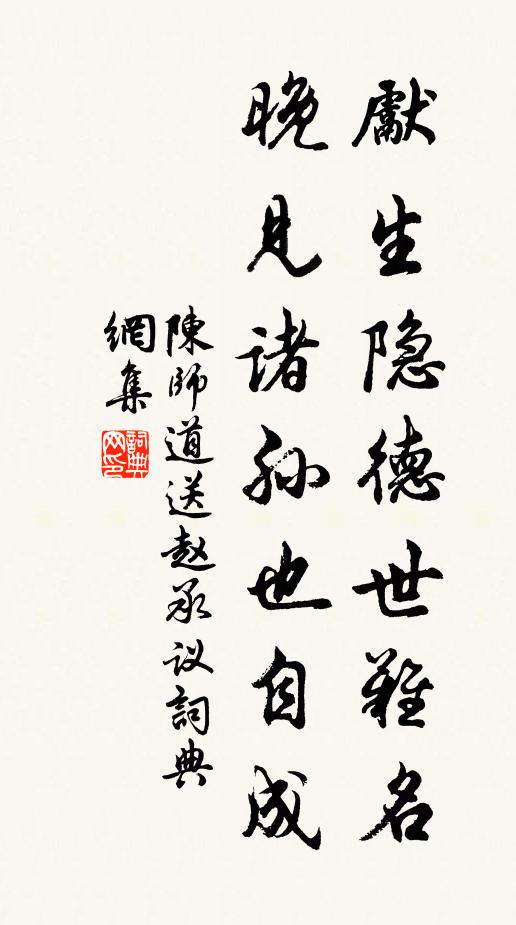 獻生隐德世難名
晚見诸孙也自成
陳師道送赵承议詞典
網集
詞典
网印